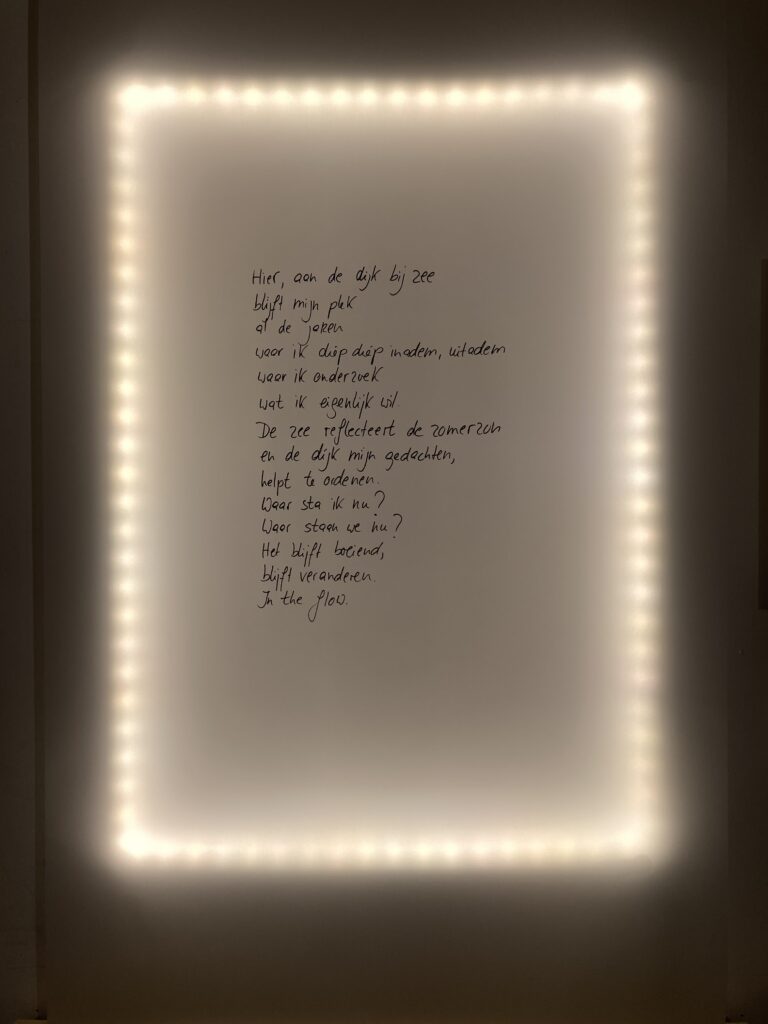 Hier, aan de dijk bij zee
blijft mijn plek
al de jaren
waar ik diep diep inadem, uitadem
waar ik onderzoek
wat ik eigenlijk wil.
De zee reflecteert de zomerzon
en de dijk mijn gedachten,
helpt te ordenen.
Waar sta ik nu?
Waar staan we nu?
Het blijft boeiend,
blijft veranderen.
In the flow.